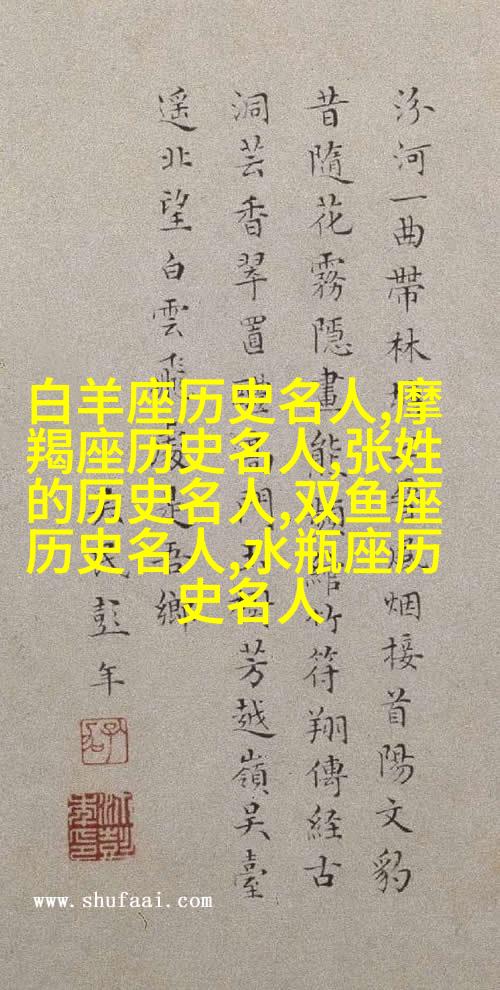 白羊座历史名人,摩
羯座历史名人,张姓
的历史名人,双鱼座
历史名人,水瓶座历
史名人
汾河一曲帶林烟接首陽文豹
昔隨花霧隱畫能綰竹符翔傳経古
洞芸香翠置高門芳越嶺吴臺
遥北望白雲飛處是吾鄉
民彭年
www.shufaai.com